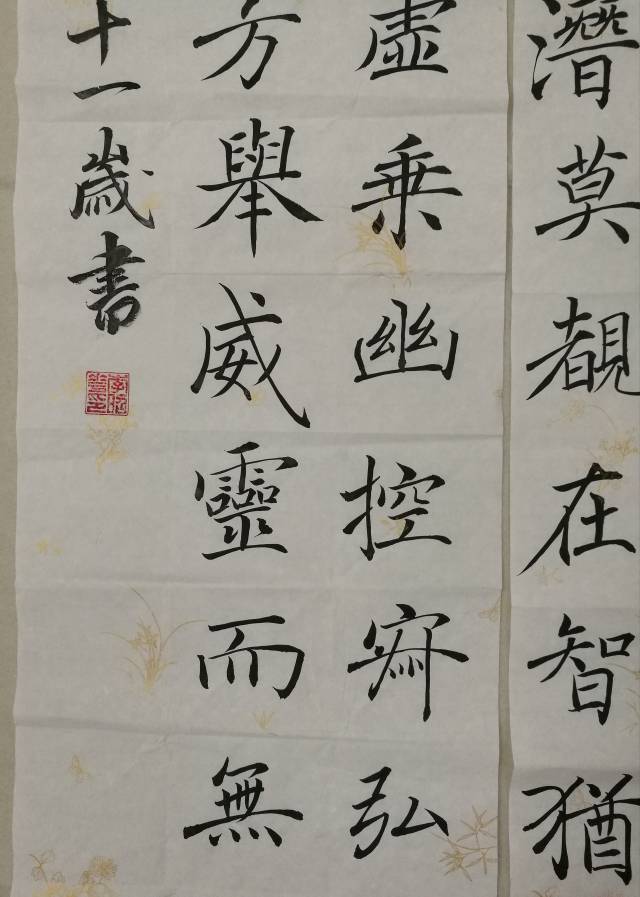 潛莫覩在智猶
虛乘幽控寂弘
方舉威靈而無
十一歲書